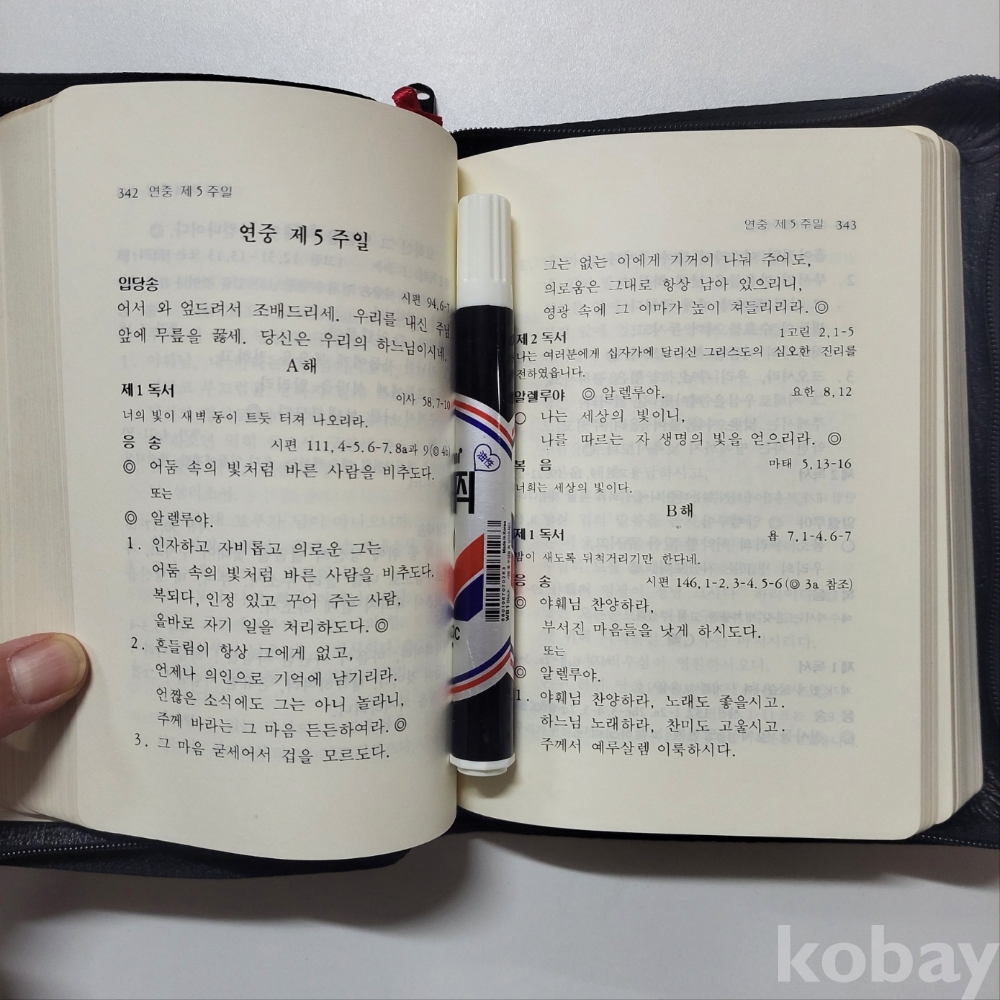 342 연중 제 5 주일
연중 제 5 주일
입당송
시편 94,6-7
어서 와 엎드려서 조배드리세. 우리를 내신 주님
앞에 무릎을 꿇세. 당신은 우리의 하느님이시네.
A 해
제 1 독서
이사 58,7-10
너의 빛이 새벽 동이 트듯 터져 나오리라.
응 송 시편 111,4-5.6-7.8a과 9(◎ 4a)
◎ 어둠 속의 빛처럼 바른 사람을 비추도다.
또는
◎ 알렐루야.
1. 인자하고 자비롭고 의로운 그는
어둠 속의 빛처럼 바른 사람을 비추도다.
복되다, 인정 있고 꾸어 주는 사람,
올바로 자기 일을 처리하도다. ◎
2. 흔들림이 항상 그에게 없고,
언제나 의인으로 기억에 남기리라.
언짢은 소식에도 그는 아니 놀라니,
주께 바라는 그 마음 든든하여라. ◎
3. 그 마음 굳세어서 겁을 모르도다.
油性
연중 제 5 주일 343
그는 없는 이에게 기꺼이 나눠 주어도,
의로움은 그대로 항상 남아 있으리니,
영광 속에 그 이마가 높이 쳐들리리라. ◎
제 2 독서 1고린 2,1-5
나는 여러분에게 십자가에 달리신 그리스도의 심오한 진리를
전하였읍니다.
알렐루야 ◎ 알렐루야. 요한 8,12
○ 나는 세상의 빛이니,
나를 따르는 자 생명의 빛을 얻으리라. ◎
복 음 마태 5,13-16
너희는 세상의 빛이다.
B 해
제 1 독서 욥 7,1-4.6-7
밤이 새도록 뒤척거리기만 한다네.
응 송 시편 146,1-2.3-4.5-6(◎ 3a 참조)
◎ 야훼님 찬양하라,
부서진 마음들을 낫게 하시도다.
또는
◎ 알렐루야.
1. 야훼님 찬양하라, 노래도 좋을시고.
하느님 노래하라, 찬미도 고울시고.
주께서 예루살렘 이룩하시다.
kobay